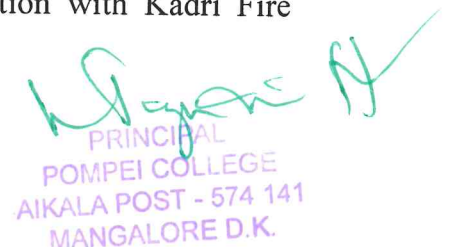 tion with Kadri Fire
PRINCIPAL
POMPEI COLLEGE
AIKALA POST - 574 141
MANGALORE D.K.